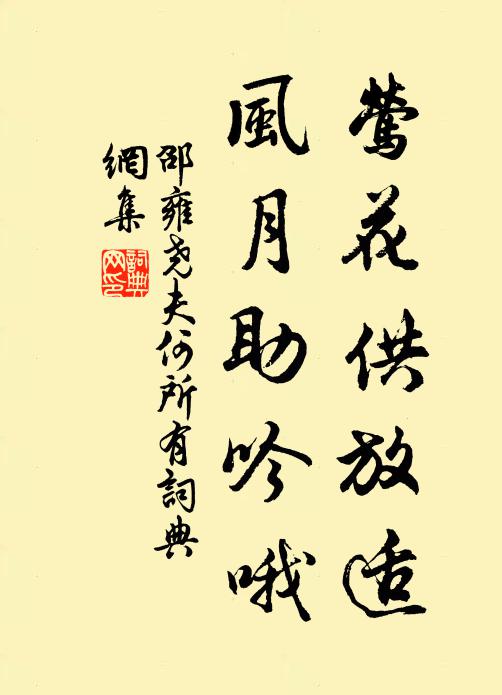 莺花供放适
風月助吟哦
邵雍尧夫何所有詞典
網集
詞典网印